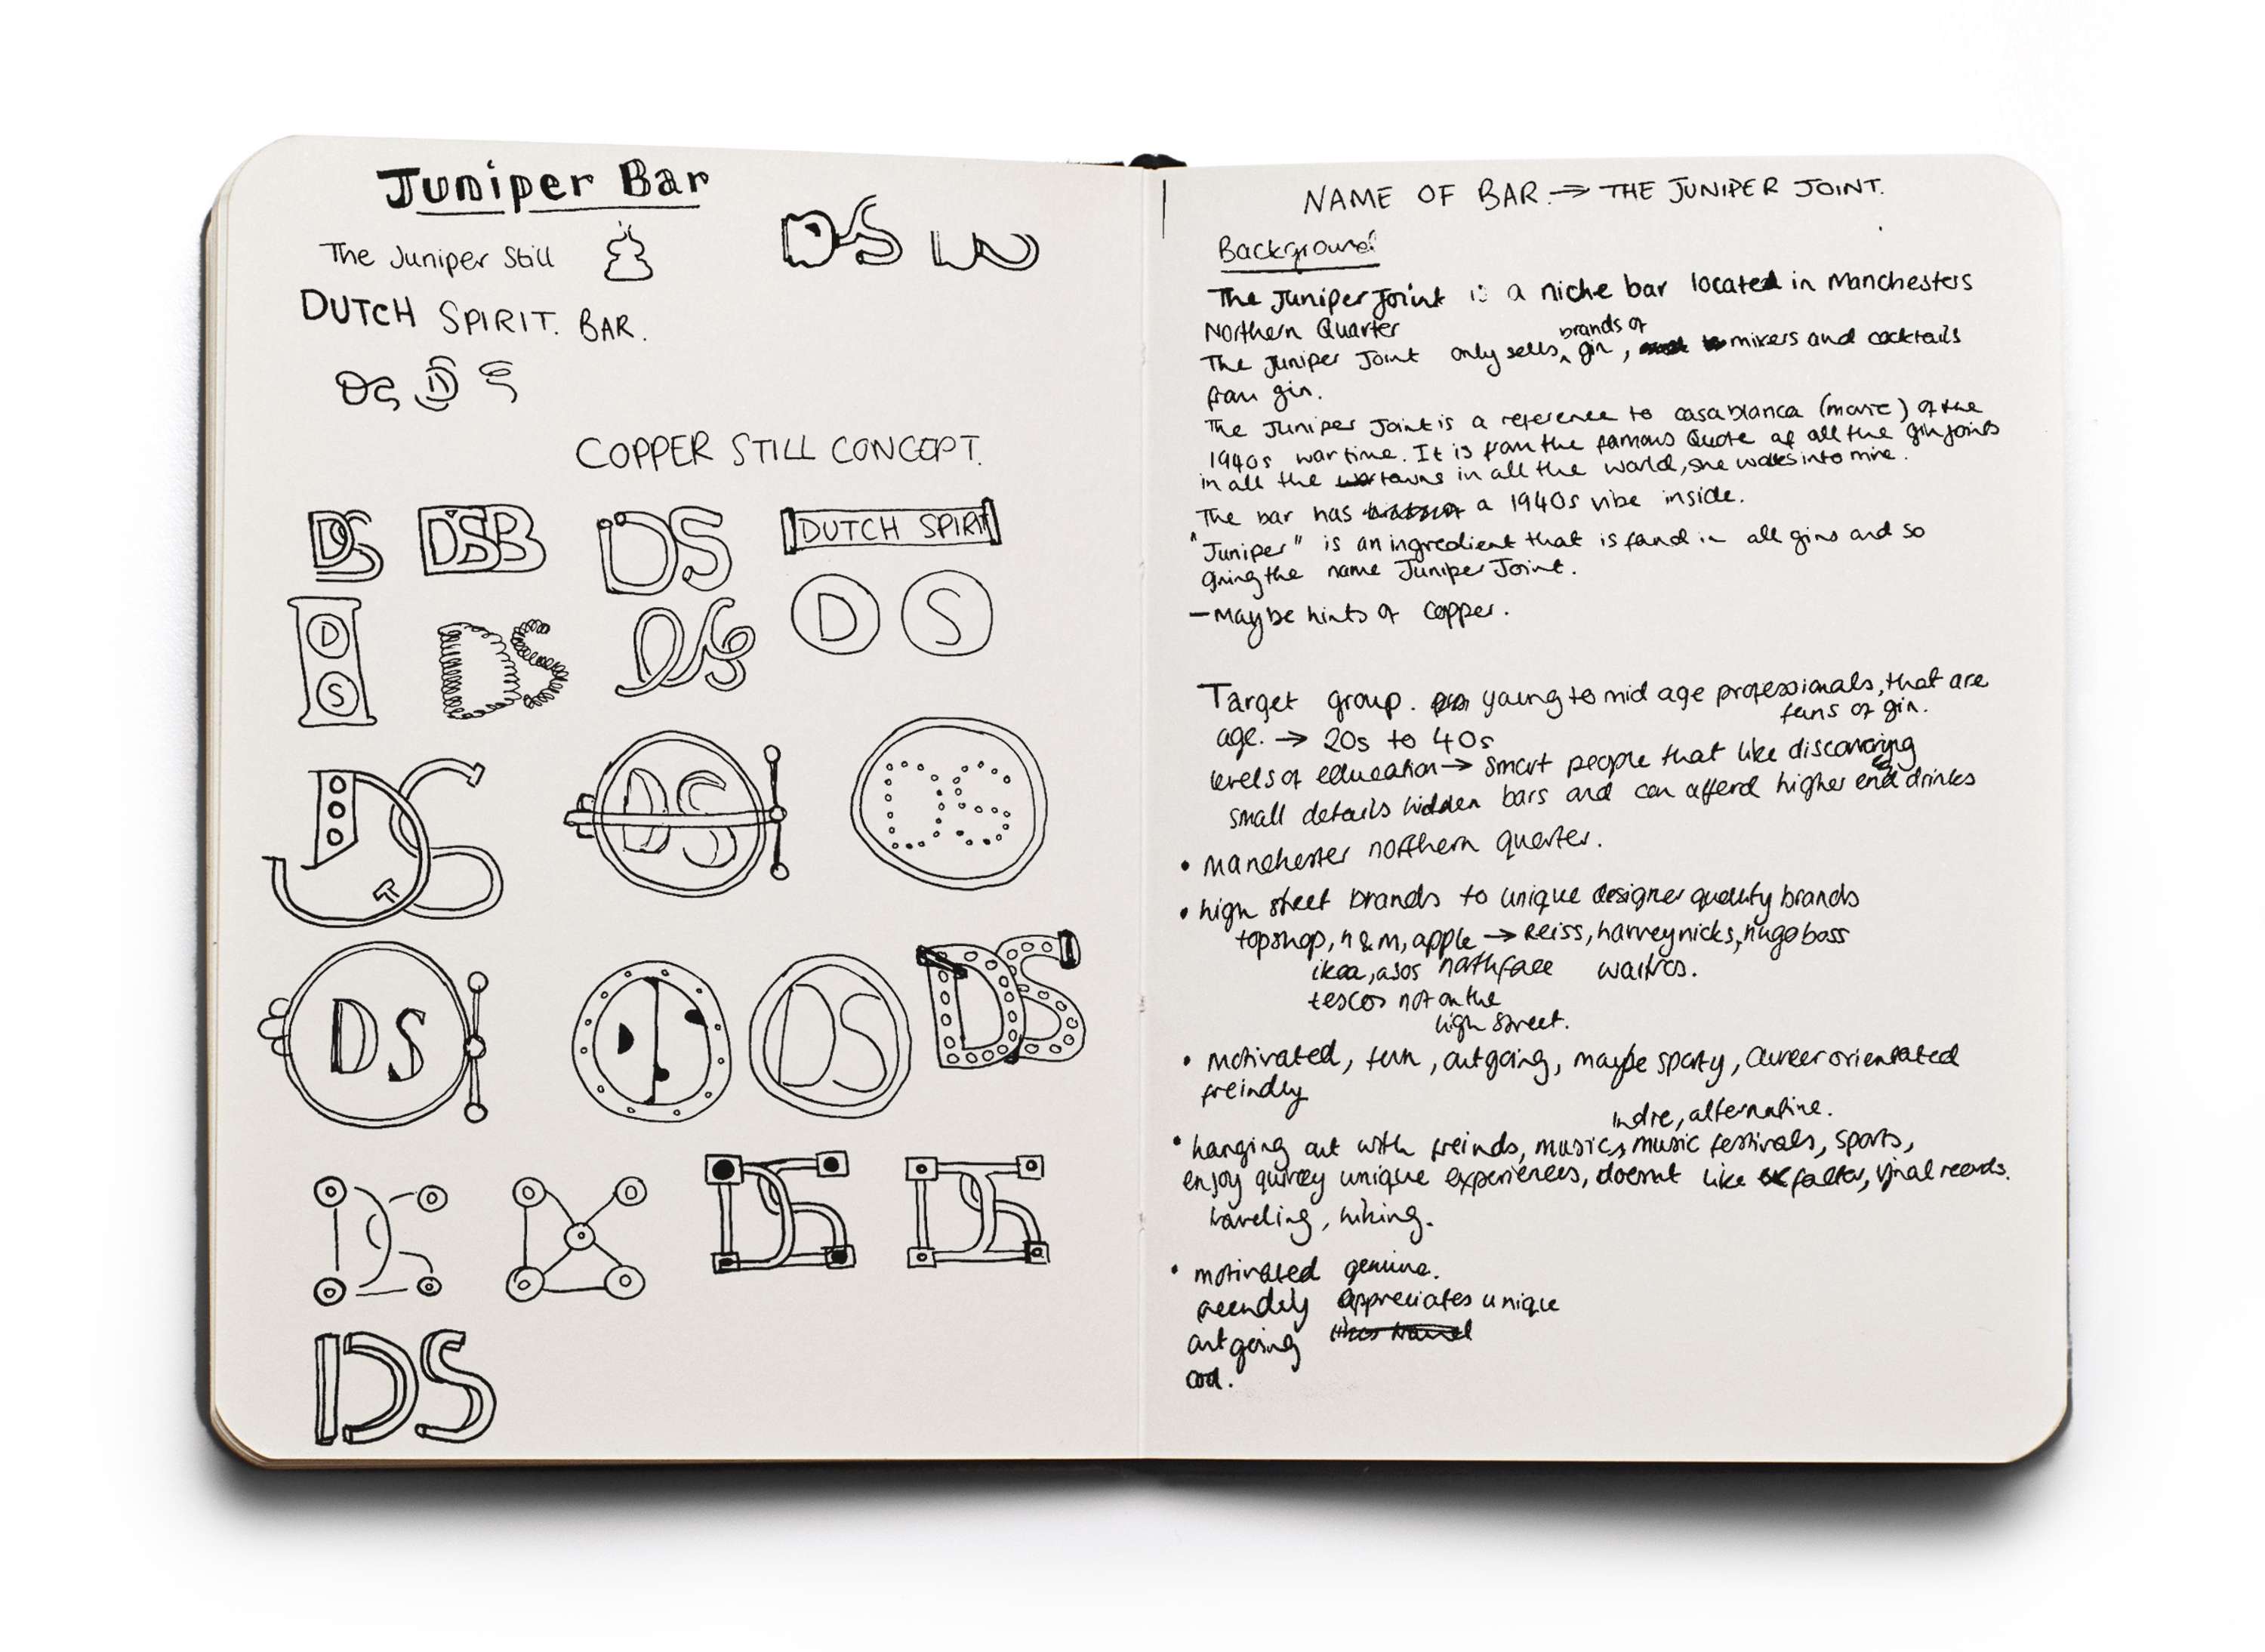 Juniper Bar
The Juniper Still
DUTCH SPIRIT. BAR.
DS
DS D S
COPPER STILL CONCEPT.
DS DSB DS DUTCH SPIRIT
D S
D
S
DS DS
DS DS DS
DS DS DS
DS
DS
NAME OF BAR. → THE JUNIPER JOINT.
Background
The Juniper Joint is a niche bar located in Manchesters
Northern Quarter
brands of
The Juniper Joint only sells gin, mixers and cocktails
from gin.
The Juniper Joint is a reference to casablanca (movie) of the
1940s war time. It is from the famous Quote of all the gin joints
in all the towns in all the world, she walks into mine.
The bar has a 1940s vibe inside.
"Juniper" is an ingredient that is found in all gins and so
giving the name Juniper Joint.
- Maybe hints of copper.
Target group. young to mid age professionals, that are
fans of gin.
age. → 20s to 40s
levels of education → smart people that like discovering
small details hidden bars and can afford higher end drinks
• Manchester northern quarter.
• high street brands to unique designer quality brands
topshop, h&m, apple → Reiss, harvey nicks, hugo boss
ikea, asos northface waitros.
tescos not on the
high street.
• motivated, fun, outgoing, maybe sporty, career orientated
freindly
indie, alternative.
• hanging out with freinds, music, music festivals, sports,
enjoy quirky unique experiences, doesnt like x factor, vinal records.
traveling, hiking.
• motivated genuine.
freindly appreciates unique
outgoing
cool.